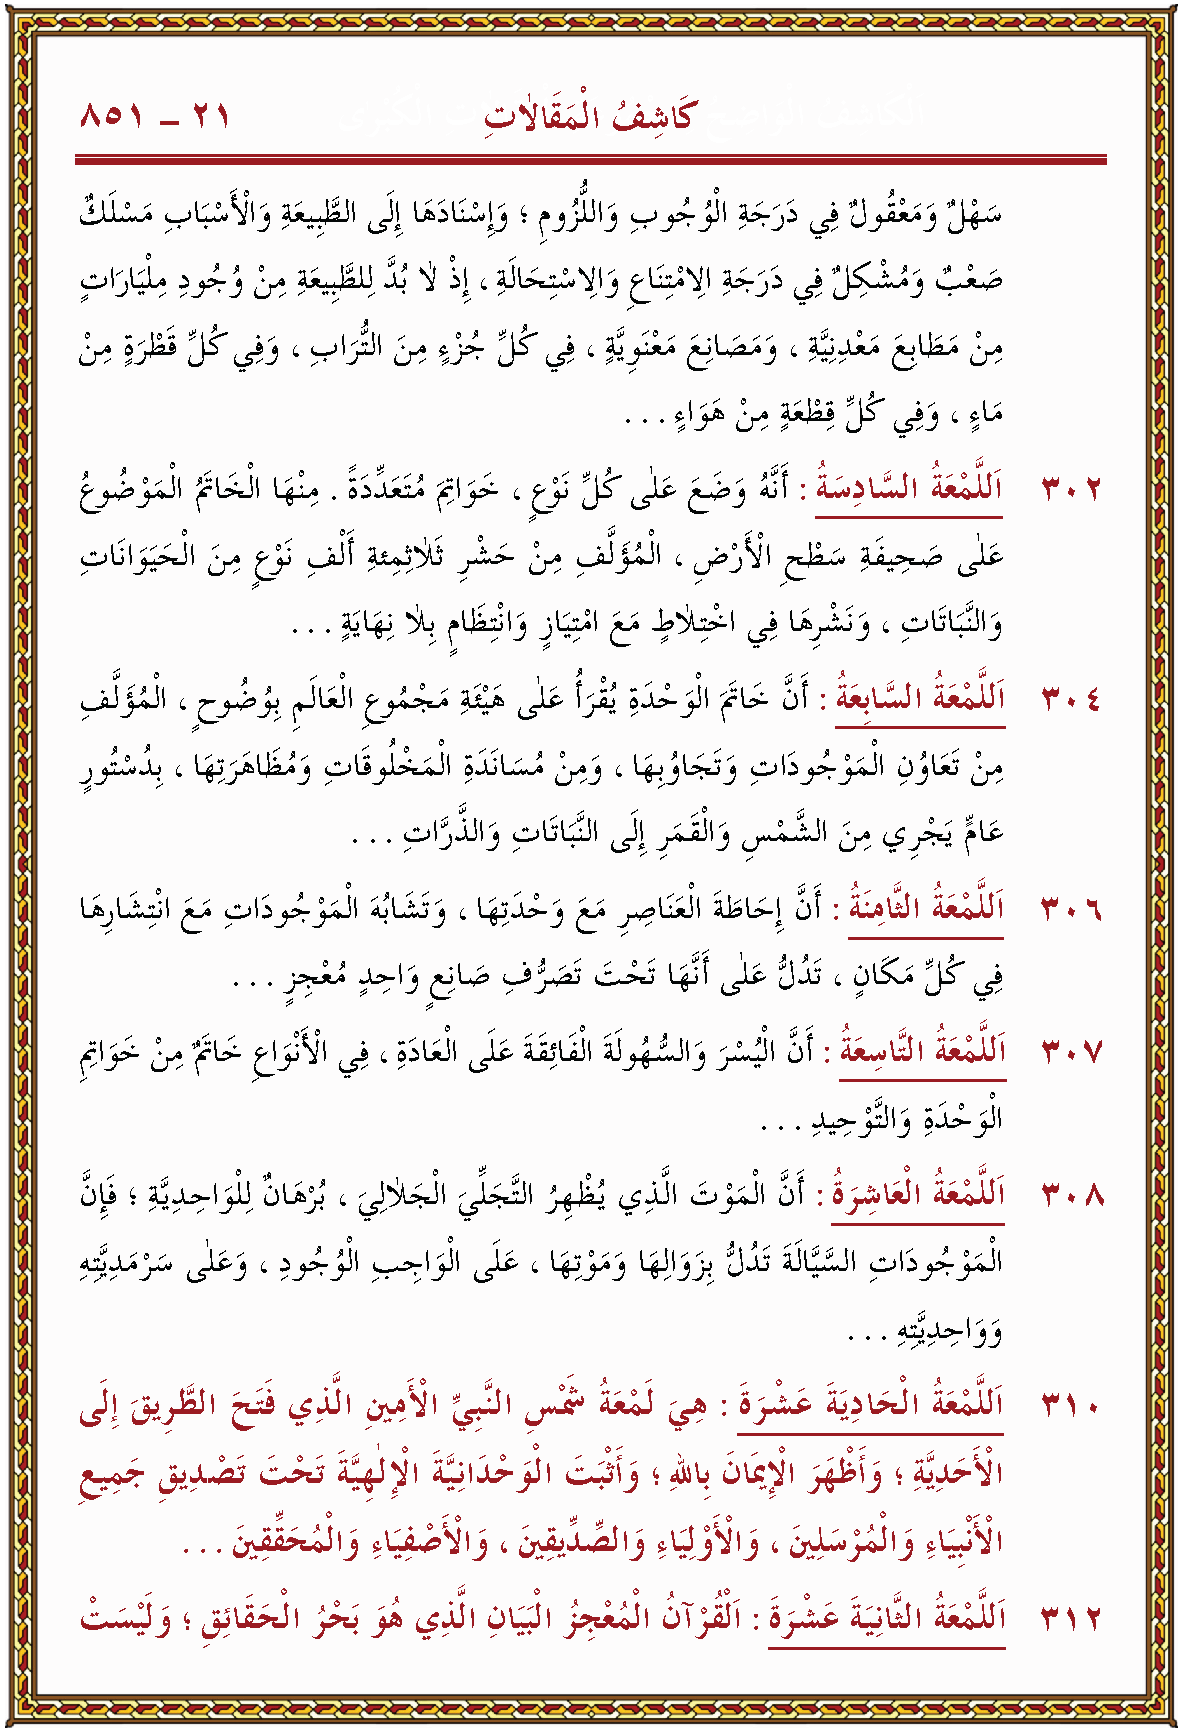 كَاشِفُ الْمَقَالَاتِ ٢١ – ٨٥١
سَهْلٌ وَمَعْقُولٌ فِي دَرَجَةِ الْوُجُوبِ وَاللُّزُومِ ؛ وَإِسْنَادَهَا إِلَى الطَّبِيعَةِ وَالْأَسْبَابِ مَسْلَكٌ
صَعْبٌ وَمُشْكِلٌ فِي دَرَجَةِ الِامْتِنَاعِ وَالِاسْتِحَالَةِ ، إِذْ لَا بُدَّ لِلطَّبِيعَةِ مِنْ وُجُودِ مِلْيَارَاتٍ
مِنْ مَطَابِعَ مَعْدِنِيَّةِ ، وَمَصَانِعَ مَعْنَوِيَّةٍ ، فِي كُلِّ جُزْءٍ مِنَ التُّرَابِ ، وَفِي كُلِّ قَطْرَةٍ مِنْ
مَاءٍ ، وَفِي كُلِّ قِطْعَةٍ مِنْ هَوَاءٍ . . .
٣٠٢ اَللَّمْعَةُ السَّادِسَةُ : أَنَّهُ وَضَعَ عَلَى كُلِّ نَوْعٍ ، خَوَاتِمَ مُتَعَدِّدَةً . مِنْهَا الْخَاتَمُ الْمَوْضُوعُ
عَلَى صَحِيفَةِ سَطْحِ الْأَرْضِ ، الْمُؤَلَّفِ مِنْ حَشْرِ ثَلَاثِمِئَةِ أَلْفِ نَوْعٍ مِنَ الْحَيَوَانَاتِ
وَالنَّبَاتَاتِ ، وَنَشْرِهَا فِي اخْتِلَاطٍ مَعَ امْتِيَازٍ وَانْتِظَامٍ بِلَا نِهَايَةٍ . . .
٣٠٤ اَللَّمْعَةُ السَّابِعَةُ : أَنَّ خَاتَمَ الْوَحْدَةِ يُقْرَأُ عَلَى هَيْئَةِ مَجْمُوعِ الْعَالَمِ بِوُضُوحٍ ، الْمُؤَلَّفِ
مِنْ تَعَاوُنِ الْمَوْجُودَاتِ وَتَجَاوُبِهَا ، وَمِنْ مُسَانَدَةِ الْمَخْلُوقَاتِ وَمُظَاهَرَتِهَا ، بِدُسْتُورٍ
عَامٍّ يَجْرِي مِنَ الشَّمْسِ وَالْقَمَرِ إِلَى النَّبَاتَاتِ وَالذَّرَّاتِ . . .
٣٠٦ اَللَّمْعَةُ الثَّامِنَةُ : أَنَّ إِحَاطَةَ الْعَنَاصِرِ مَعَ وَحْدَتِهَا ، وَتَشَابُهَ الْمَوْجُودَاتِ مَعَ انْتِشَارِهَا
فِي كُلِّ مَكَانٍ ، تَدُلُّ عَلَى أَنَّهَا تَحْتَ تَصَرُّفِ صَانِعٍ وَاحِدٍ مُعْجِزٍ . . .
٣٠٧ اَللَّمْعَةُ التَّاسِعَةُ : أَنَّ الْيُسْرَ وَالسُّهُولَةَ الْفَائِقَةَ عَلَى الْعَادَةِ ، فِي الْأَنْوَاعِ خَاتَمٌ مِنْ خَوَاتِمِ
الْوَحْدَةِ وَالتَّوْحِيدِ . . .
٣٠٨ اَللَّمْعَةُ الْعَاشِرَةُ : أَنَّ الْمَوْتَ الَّذِي يُظْهِرُ التَّجَلِّيَ الْجَلَالِيَ ، بُرْهَانٌ لِلْوَاحِدِيَّةِ ؛ فَإِنَّ
الْمَوْجُودَاتِ السَّيَّالَةَ تَدُلُّ بِزَوَالِهَا وَمَوْتِهَا ، عَلَى الْوَاجِبِ الْوُجُودِ ، وَعَلَى سَرْمَدِيَّتِهِ
وَوَاحِدِيَّتِهِ . . .
٣١٠ اَللَّمْعَةُ الْحَادِيَةَ عَشْرَةَ : هِيَ لَمْعَةُ شَمْسِ النَّبِيِّ الْأَمِينِ الَّذِي فَتَحَ الطَّرِيقَ إِلَى
الْأَحَدِيَّةِ ؛ وَأَظْهَرَ الْإِيمَانَ بِاللهِ ؛ وَأَثْبَتَ الْوَحْدَانِيَّةَ الْإِلٰهِيَّةَ تَحْتَ تَصْدِيقِ جَمِيعِ
الْأَنْبِيَاءِ وَالْمُرْسَلِينَ ، وَالْأَوْلِيَاءِ وَالصِّدِّيقِينَ ، وَالْأَصْفِيَاءِ وَالْمُحَقِّقِينَ . . .
٣١٢ اَللَّمْعَةُ الثَّانِيَةَ عَشْرَةَ : اَلْقُرْآنُ الْمُعْجِزُ الْبَيَانِ الَّذِي هُوَ بَحْرُ الْحَقَائِقِ ؛ وَلَيْسَتْ